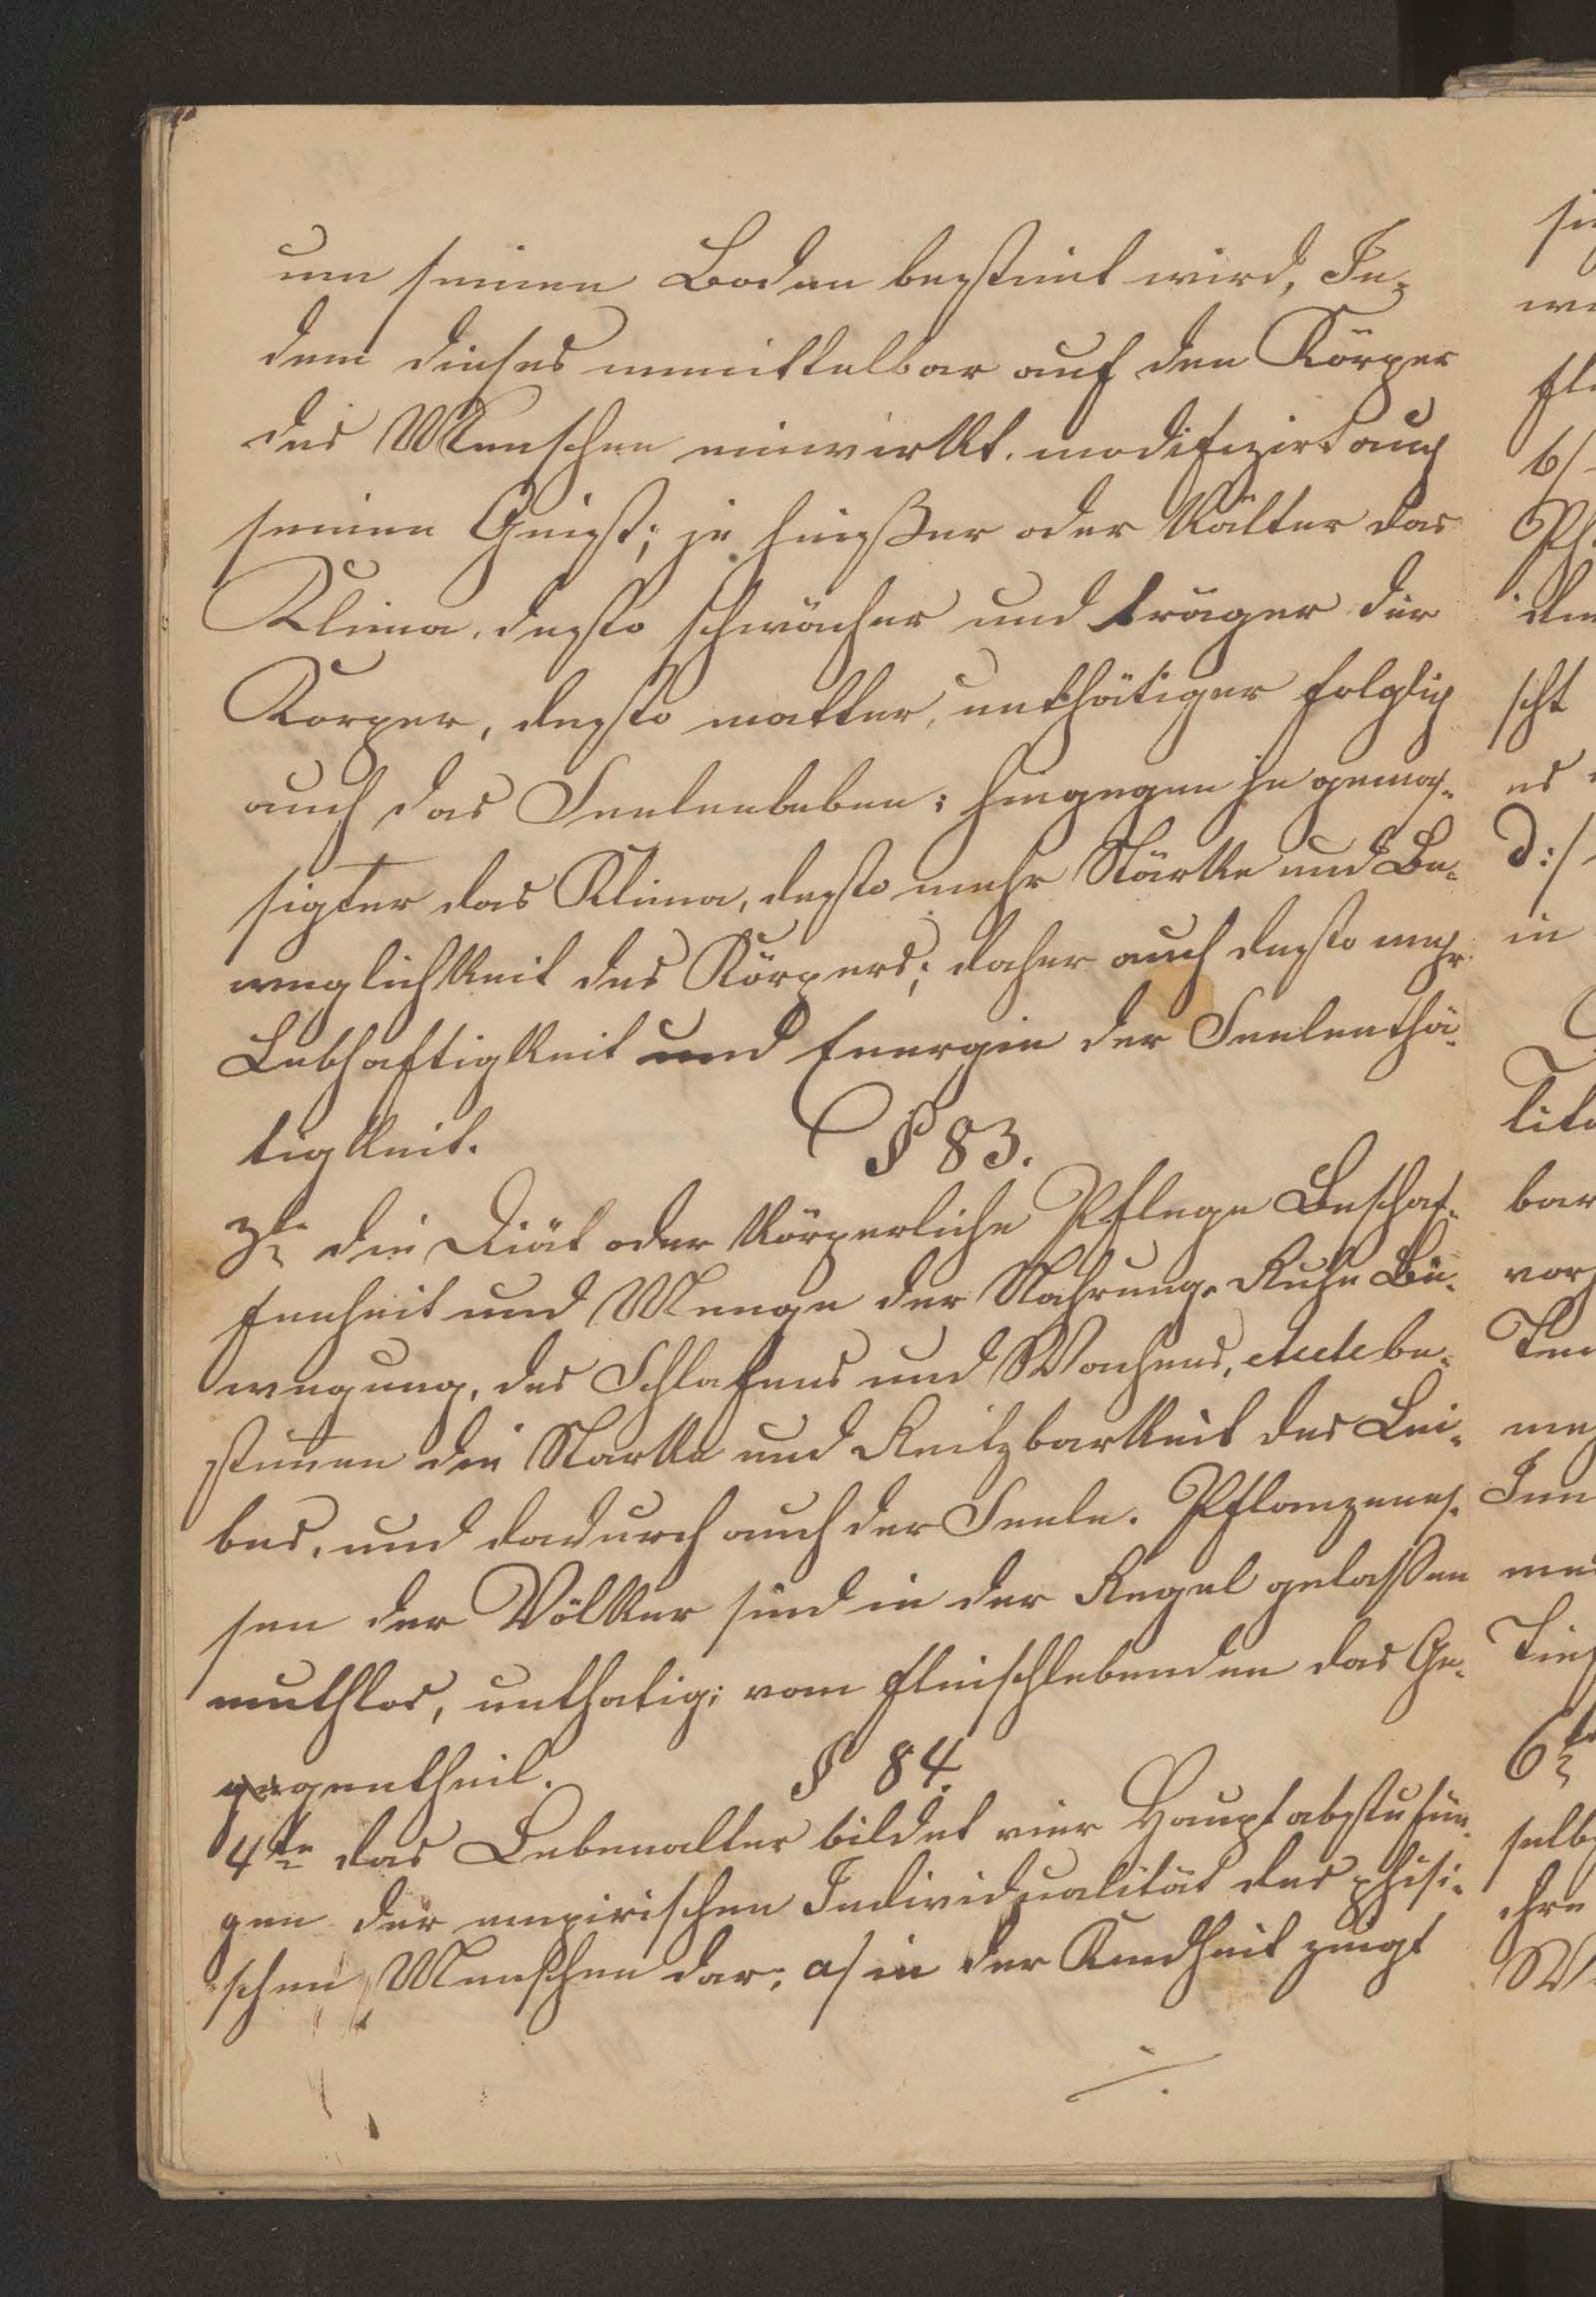 um seinen Boden bestimt wird, In-
dem dieses unmittelbar auf den Körper
des Menschen einwirkt. modifizirt auch
seinen Geist; je heißer oder kälter das
Klima, desto schwächer und träger der
Korper, desto matter, unthätiger folglich
auch das Seelenleben; hingegen je gemäs-
sigter das Klima, desto mehr Stärke und Be-
weglichkeit des Körpers; daher auch desto mehr
Lebhaftigkeit und Energie der Seelenthä-
tigkeit.
§ 83.
3te die Diät oder körperliche Pflege Beschaf-
fenheit und Menge der Nahrung, Ruhe Be-
wegung, des Schlafens und Wachens, etc etc be-
stimen die Starke und Reitzbarkeit des Lei-
bes, und dadurch auch der Seele. Pflanzenes-
sen der Völker sind in der Regel gelassen
muthlos, unthatig; vom fleischlebenden das Ge-
gegentheil.
§ 84.
4te das Lebenalter bildet vier Hauptabstufun-
gen der empirischen Individualität des phisi-
schen Menschen dar; a/ in der Kindheit zeigt
./.
sie
we
fle
b/
Ph
scht
es
d:/
in
lita
bar
vor
Tem
me
Inn
Tief
6te
selbs
chen
W